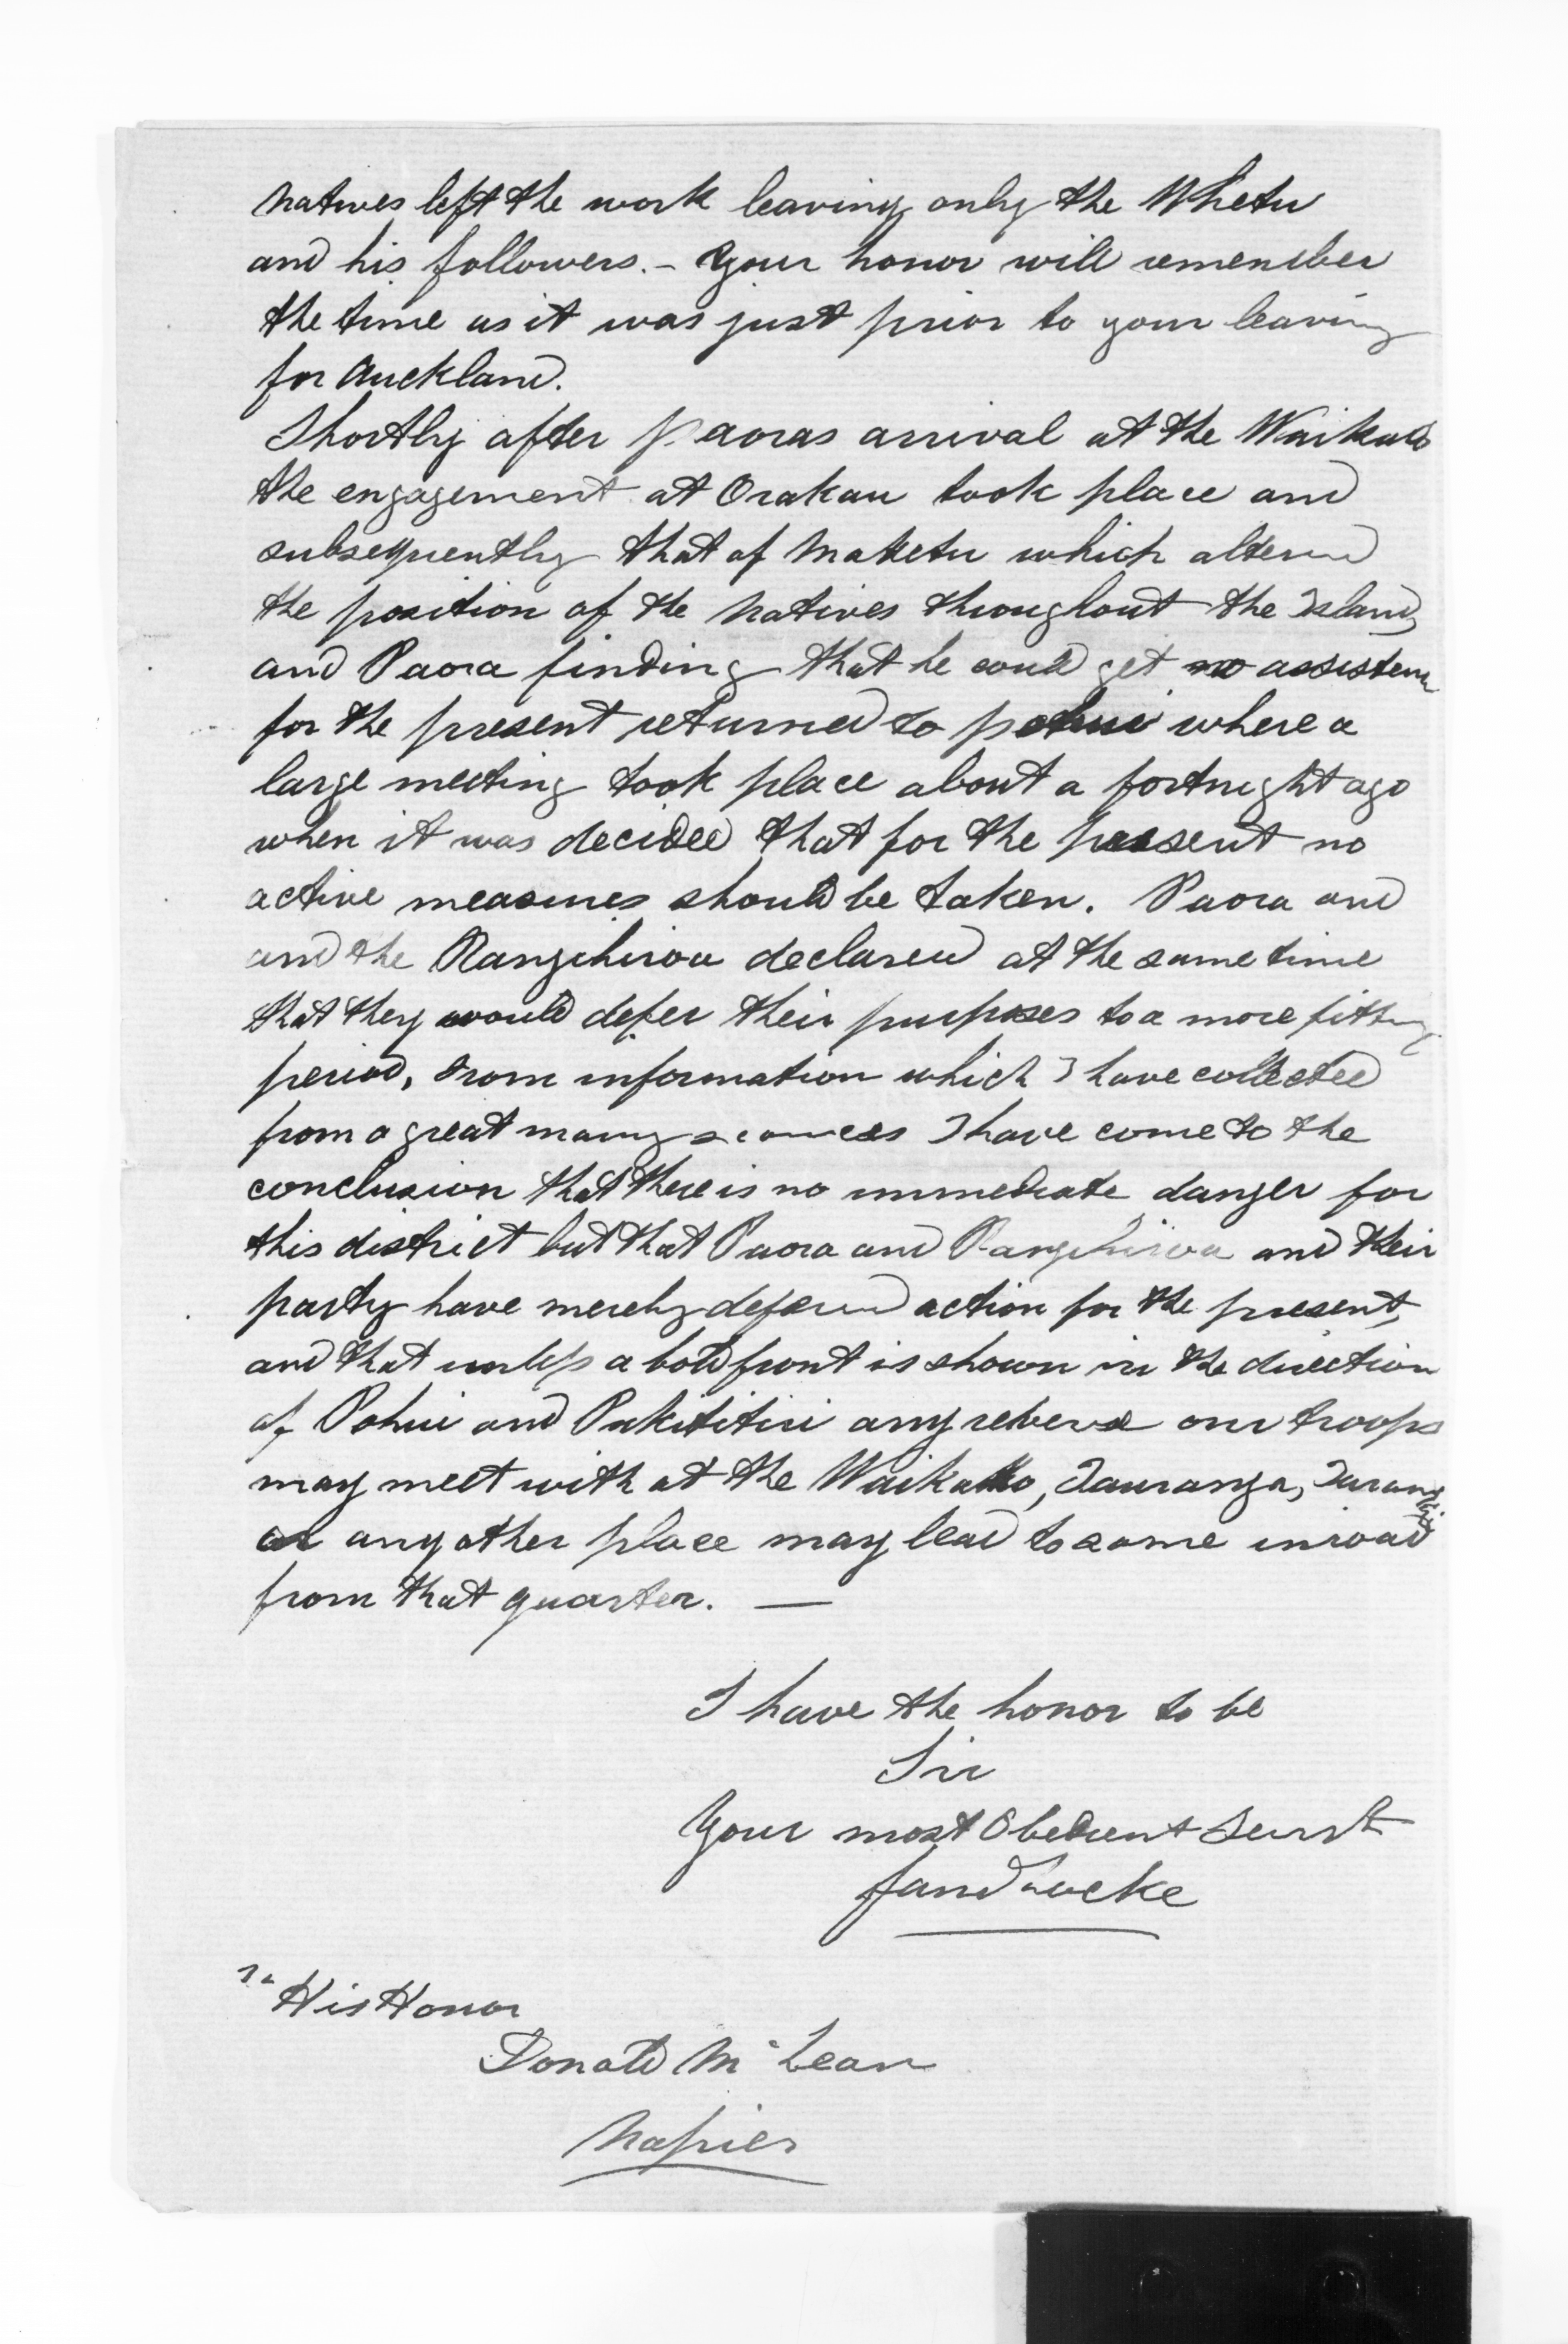 natives left the work leaving only the Whetu
and his followers. – Your honor will remember
the time as it was just prior to your leaving
for Auckland.
Shortly after Paoras arrival at the Waikato
the engagement at Orakau took place and
subsequently that of Maketu which altered
the position of the Natives throughout the Island,
and Paora finding that he could get no assistence
for the present returned to pohui where a
large meeting took place about a fortnight ago
when it was decided that for the present no
active measures should be taken. Paora and
and the Rangihiroa declared at the same time
that they would defer their purposes to a more fitting
period, From information which I have collected
from a great many sources I have come to the
conclusion that there is no immediate danger for
this district but that Paora and Rangihiroa and their
party have merely defered action for the present,
and that unless a bold front is shown in the direction
of Pohui and Pukititiri any reverse our troops
may meet with at the Waikato, Tauranga,
or any other place may lead to some inroad
from that quarter. —
I have the honor to be
Sir
Your most Obedient Servt
Locke
To His Honor
Donald McLean
Napier